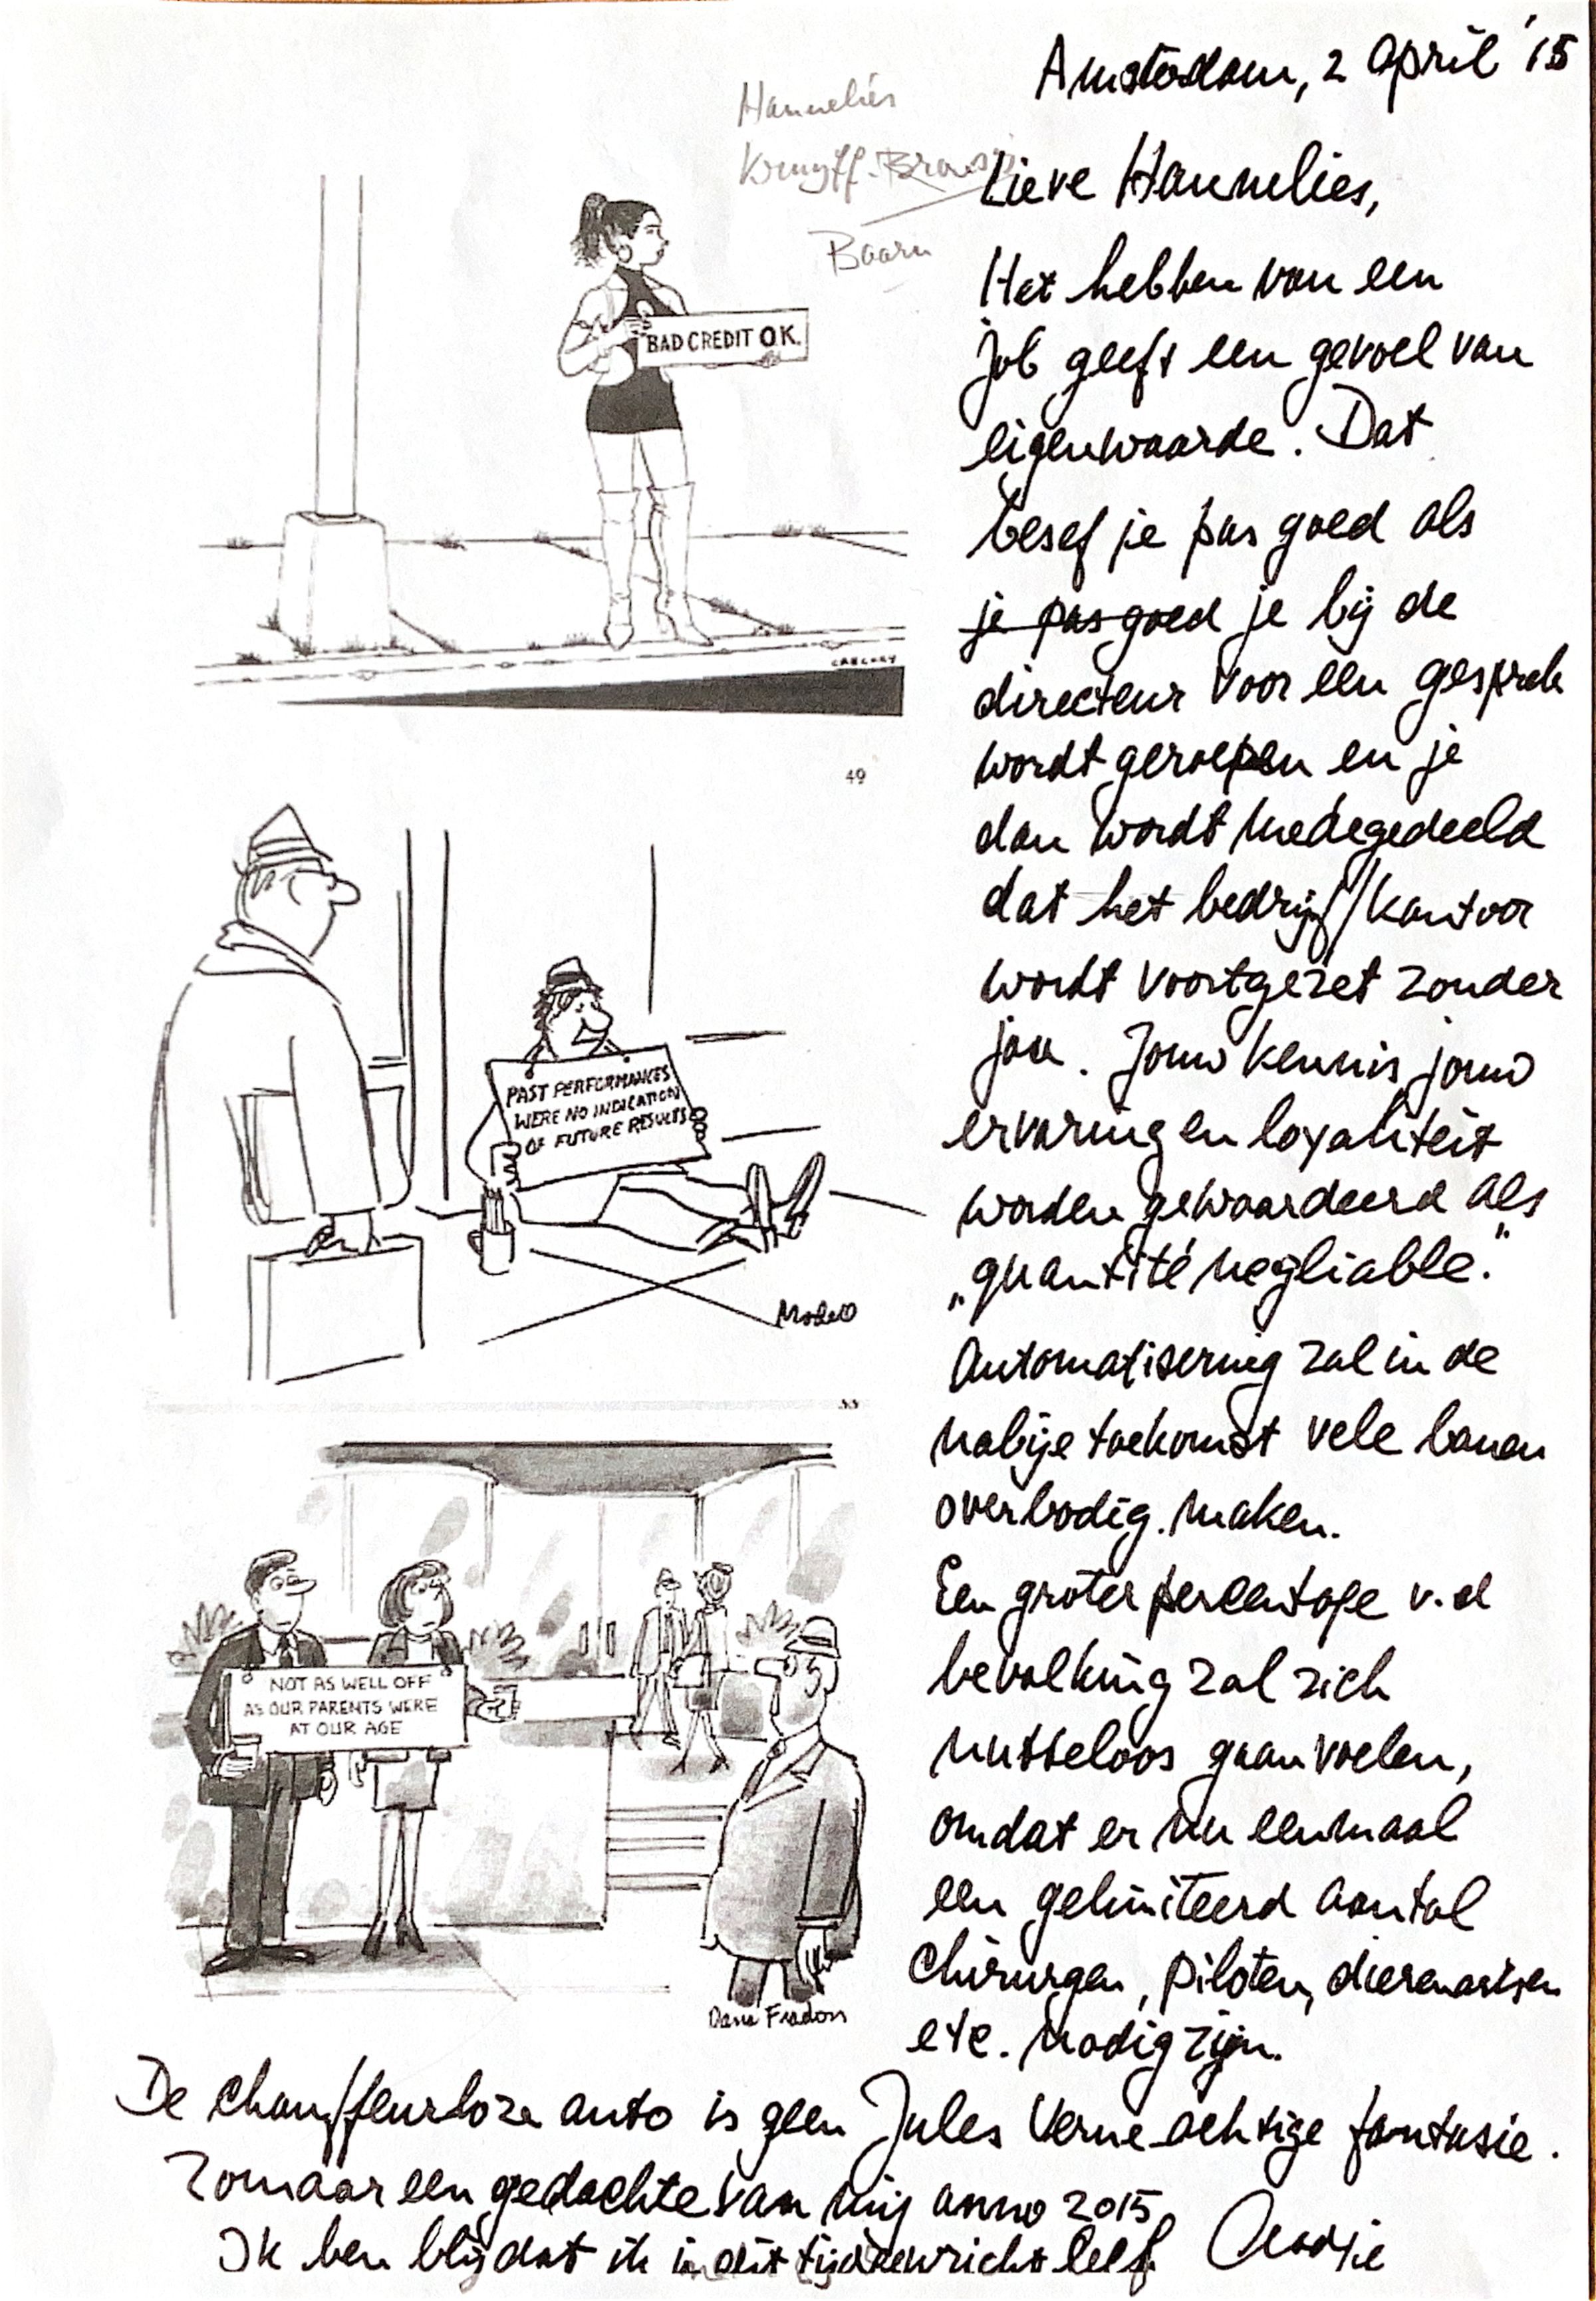 Amsterdam, 2 April '15
Hannelies
Kruyff-
Baarn
Lieve Hannelies,
Het hebben van een
job geeft een gevoel van
eigenwaarde. Dat
besef je pas goed als
je pas goed je bij de
directeur voor een gesprek
wordt geroepen en je
dan wordt medegedeeld
dat het bedrijf/kantoor
wordt voortgezet zonder
jou. Jouw kennis, jouw
ervaring en loyaliteit
worden gewaardeerd als
„quantité negliable."
Automatisering zal in de
nabije toekomst vele banen
overbodig maken.
Een groter percentage v.d
bevolking zal zich
nutteloos gaan voelen,
omdat er nu eenmaal
een gelimiteerd aantal
chirurgen, piloten, dierenartsen
etc. nodig zijn.
De chauffeurloze auto is geen Jules Verne achtige fantasie.
Zomaar een gedachte van mij anno 2015
Ik ben blij dat ik in dit tijdsgewricht leef.
BAD CREDIT O.K.
GREGORY
49
PAST PERFORMANCES
WERE NO INDICATION
OF FUTURE RESULTS
Modell
NOT AS WELL OFF
AS OUR PARENTS WERE
AT OUR AGE
Dana Fradon